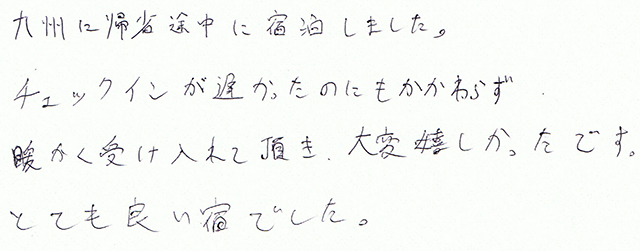 九州に帰省途中に宿泊しました。
チェックインが遅かったのにもかかわらず
暖かく受け入れて頂き、大変嬉しかったです。
とても良い宿でした。